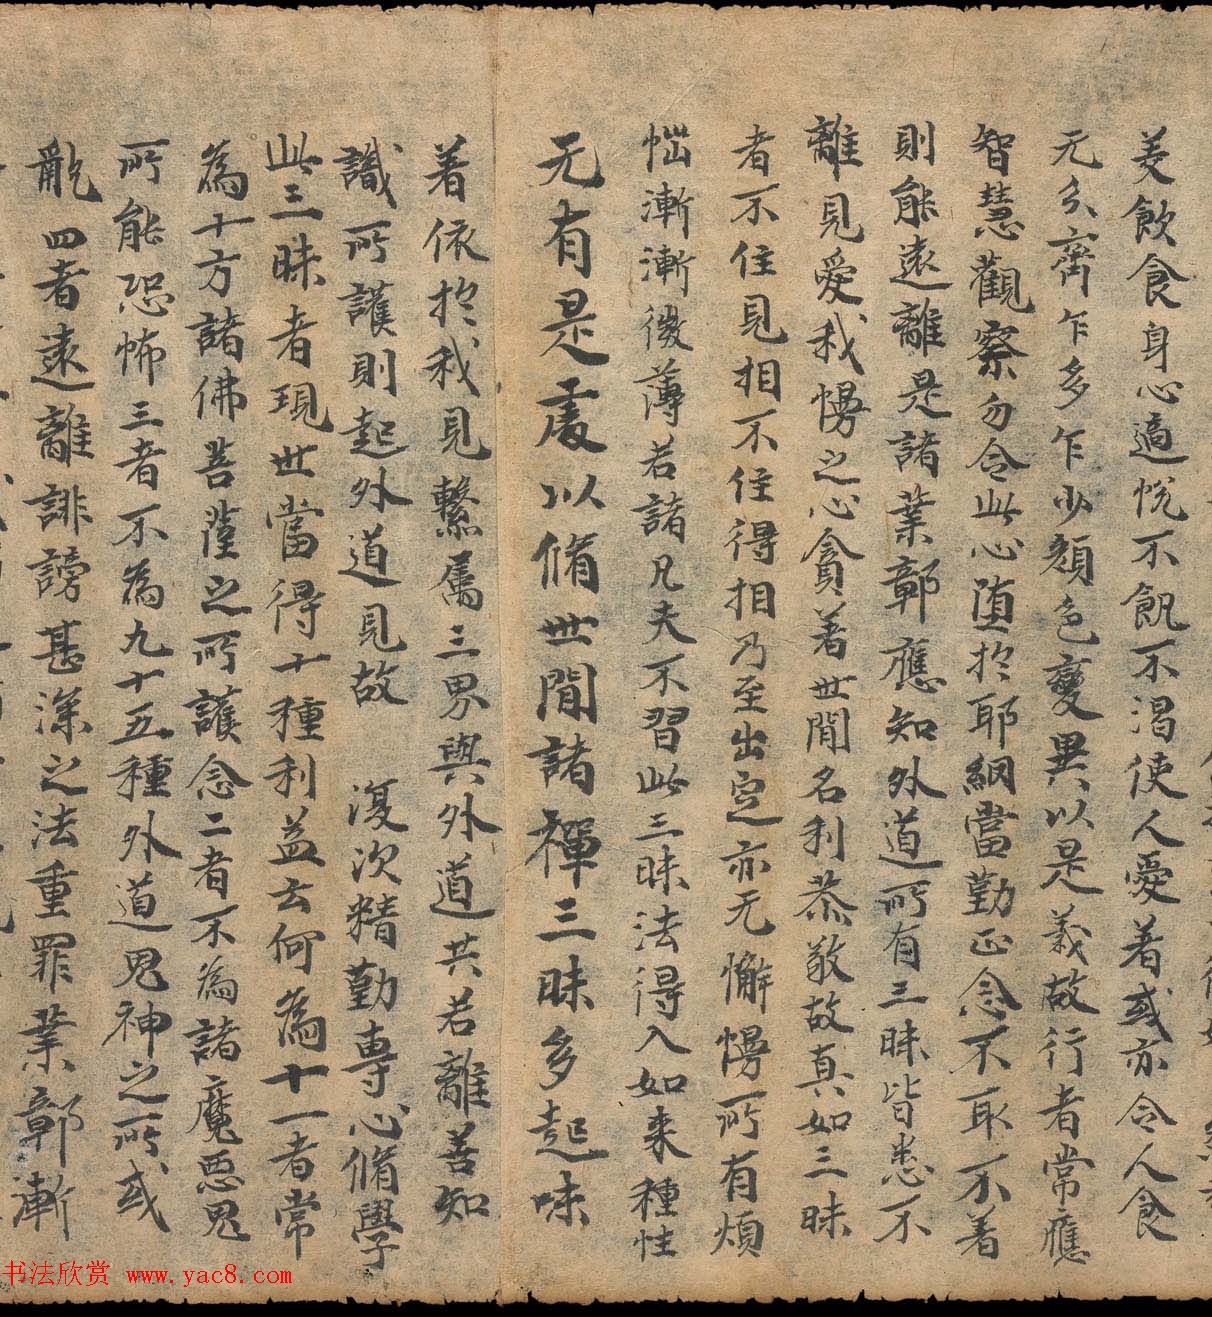 美飲食身心適悅不飢不渴使人愛著或亦令人食
无分齊乍多乍少顏色變異以是義故行者常應
智慧觀察勿令此心墮於耶網當勤正念不取不著
則能遠離是諸業鄣應知外道所有三昧皆悉不
離見愛我慢之心貪著世間名利恭敬故真如三昧
者不住見相不住得相乃至出定亦无懈慢所有煩
惱漸漸微薄若諸凡夫不習此三昧法得入如来種性
无有是處以脩世間諸禪三昧多起味
著依於我見繫屬三界與外道共若離善知
識所護則起外道見故 復次精勤專心脩學
此三昧者現世當得十種利益云何為十一者常
為十方諸佛菩薩之所護念二者不為諸魔惡鬼
所能恐怖三者不為九十五種外道鬼神之所或
亂四者遠離誹謗甚深之法重罪業鄣漸
书法欣赏 www.yac8.com